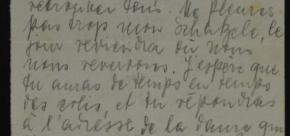 retrouver tous. Ne pleures
pas trop mon Schatzele, le
jour reviendra où nous
nous reverrons. J'espère que
tu auras de temps en temps
des colis, et tu répondras
à l'adresse de la dame qui